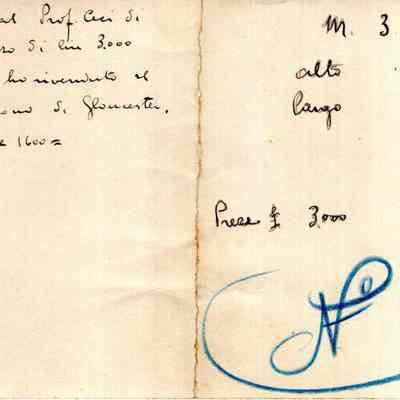 al Prof. Ceci di
so di lire 3.000
ho rivenduto al
uono di Gloucester.
e 1600=
M. 3
alto
largo
Prezzo £ 3.000
No